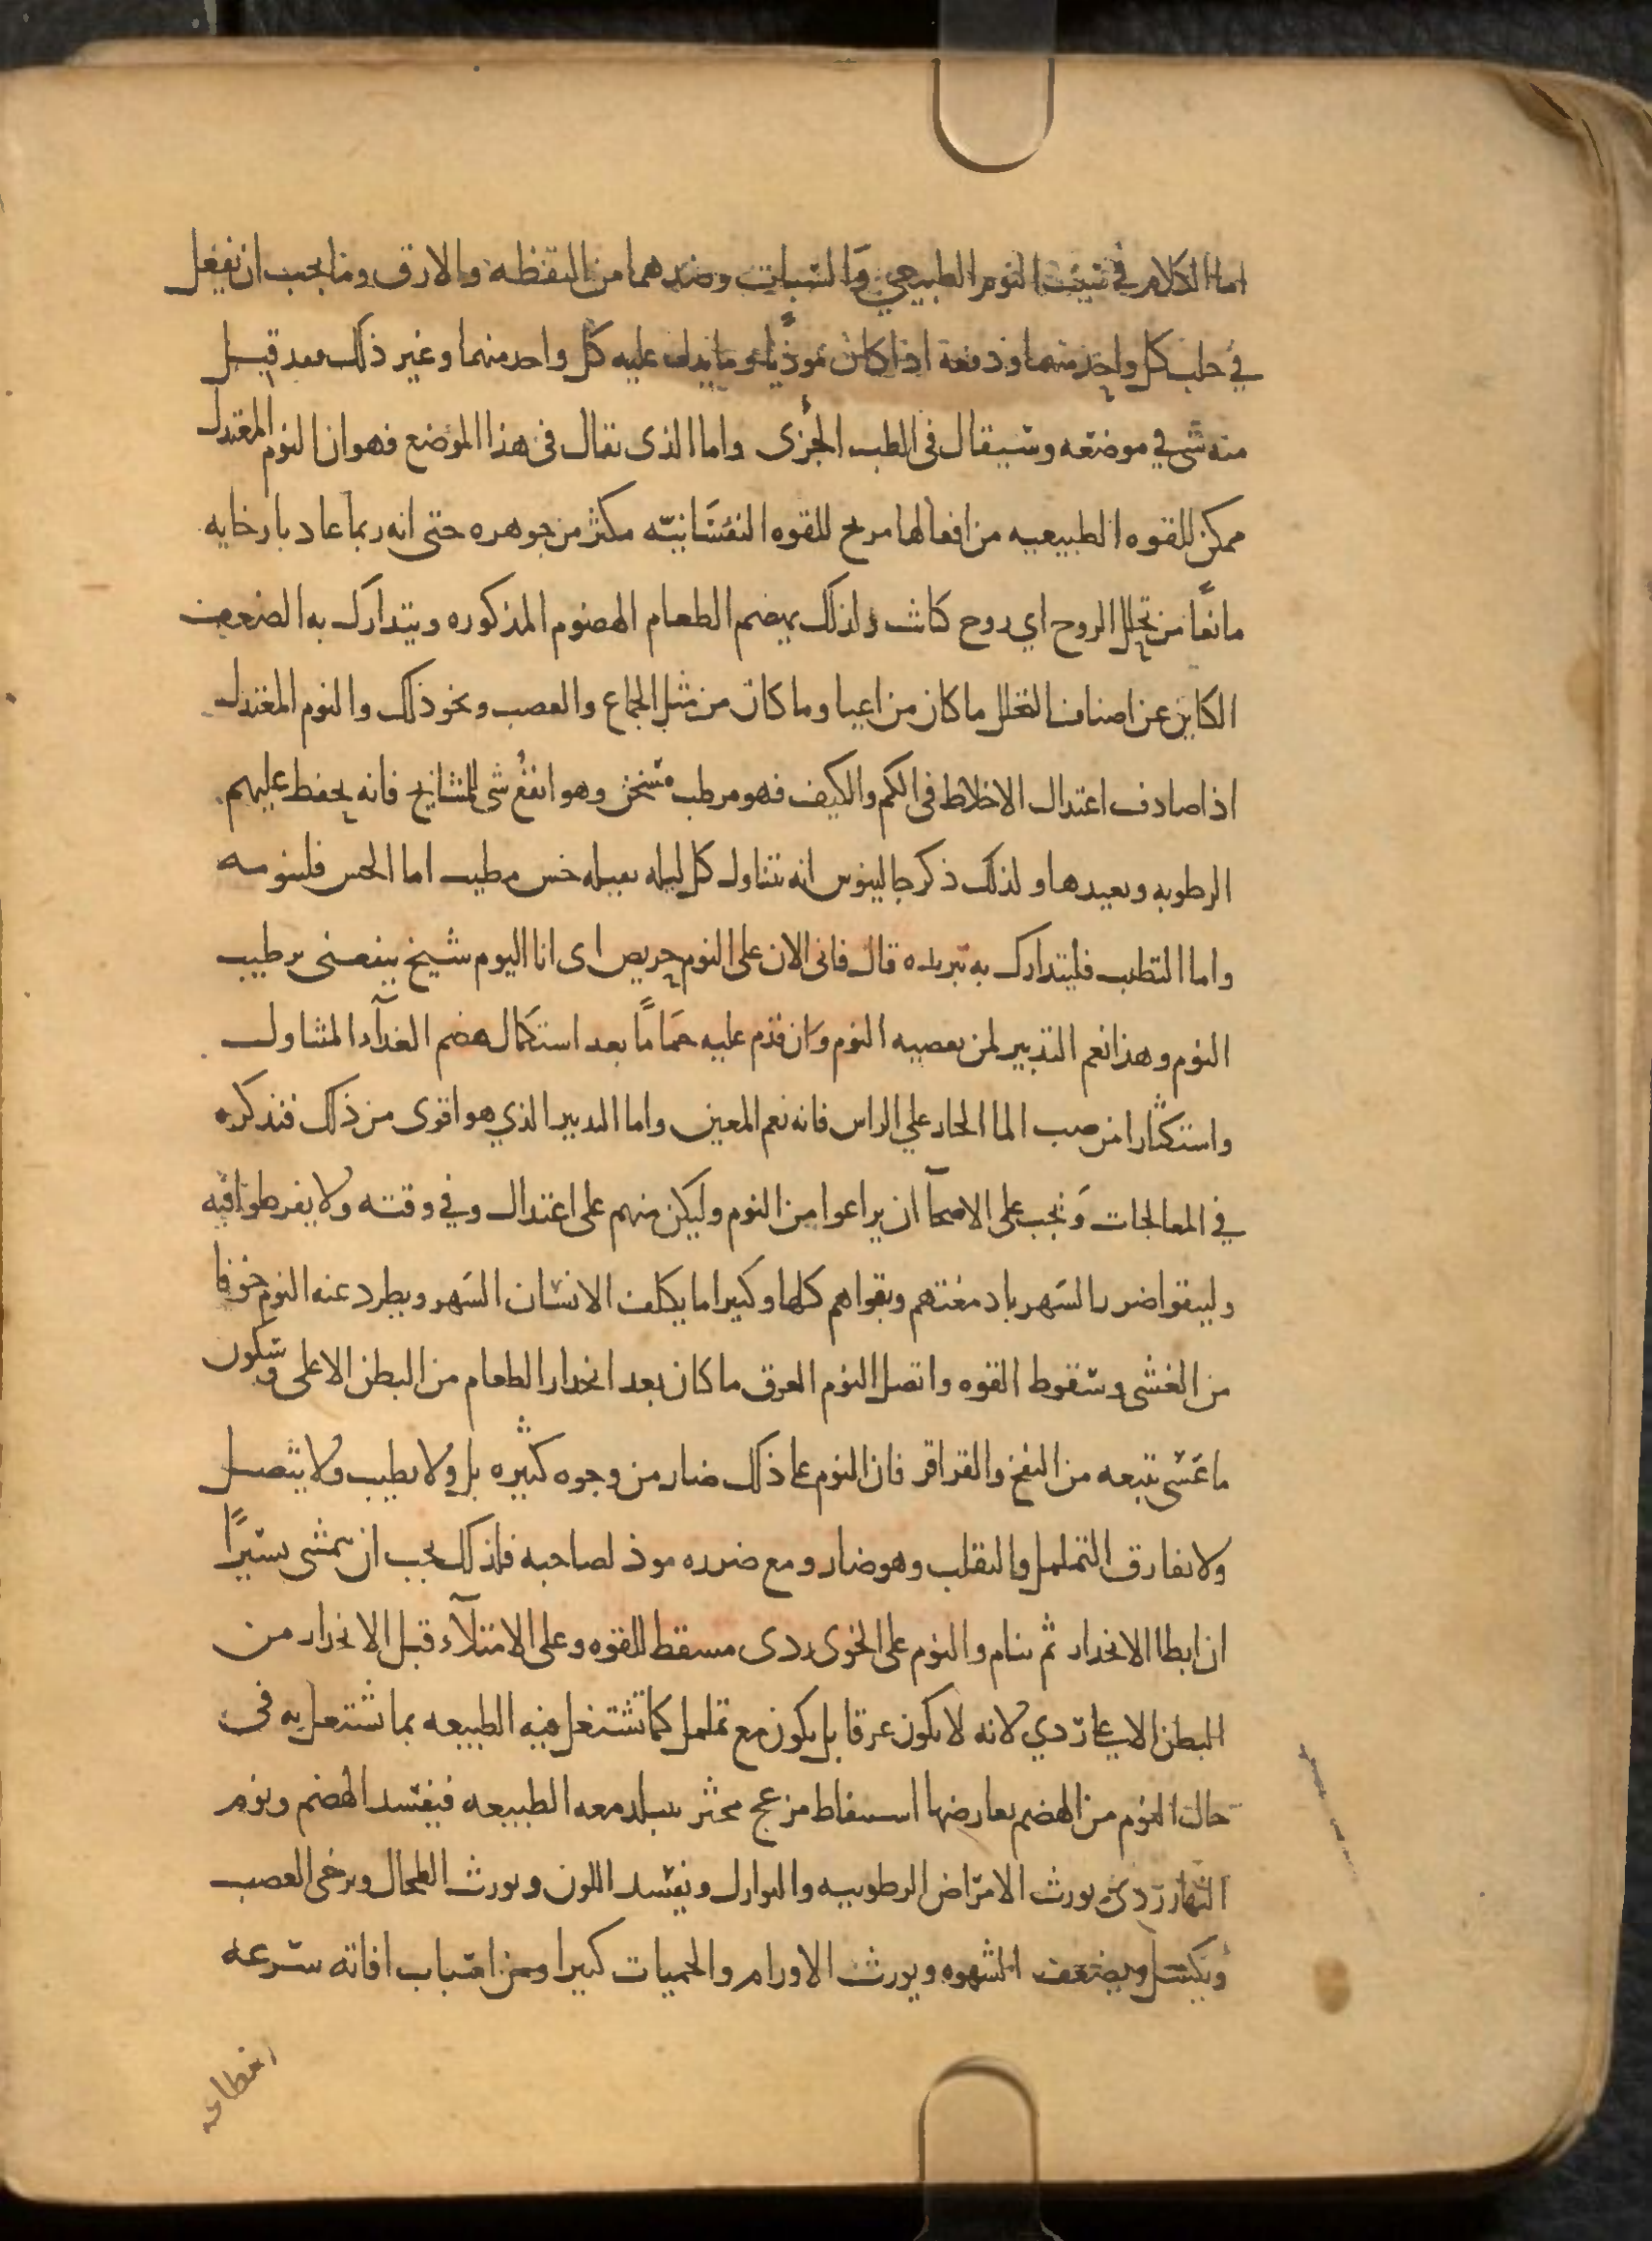 اما الكلام في سبب النوم الطبيعي والسبات وضدهما من اليقظه والارق وما يجب ان يفعل
في جلب كل واحد منهما ودفعه اذا كان موذيًا وما يدل عليه كل واحد منهما وغير ذلك فقد قيل
منه شى في موضعه وسيقال فى الطب الجزى واما الذى يقال فى هذا الموضع فهو ان النوم المعتدل
ممكن للقوه الطبيعيه من افعالها مرخ للقوه النفسانيه مكثر من جوهره حتى انه ربما عاد بارخايه
مانعًا من تحلل الروح اي روح كانت ولذلك يهضم الطعام الهضوم المذكوره ويتدارك به الضعف
الكاين عن اصناف التحلل ما كان من اعيا وما كان من مثل الجماع والغضب ونحو ذلك والنوم المعتدل
اذا صادف اعتدال الاخلاط فى الكم والكيف فهو مرطب مسخن وهو انفع شى للمشايخ فانه يحفظ عليهم
الرطوبه ويعيدها ولذلك ذكر جالينوس انه يتناول كل ليله بقيله خس مطيب اما الخس فلينومه
واما التطيب فليتدارك به تبريده قال فانى الان على النوم حريص اى انا اليوم شيخ ينفعنى ترطيب
النوم وهذا نعم التدبير لمن يعصيه النوم وان قدم عليه حمامًا بعد استكمال هضم الغدآء المتناول
واستكثارا من صب الما الحار علي الراس فانه نعم المعين واما التدبير الذي هو اقوى من ذلك فنذكره
في المعالجات ويجب على الاصحآ ان يراعوا من النوم وليكن منهم على اعتدال وفي وقته ولا يفرطوا فيه
وليتقوا ضرر السهر بادمغتهم وبقواهم كلها وكثيرا ما يكلف الانسان السهر ويطرد عنه النوم خوفا
من الغشى وسقوط القوه وافضل النوم الغرق ما كان بعد انحدار الطعام من البطن الاعلى وسكون
ما عسى يتبعه من النفخ والقراقر فان النوم على ذلك ضار من وجوه كثيره بل ولا يطيب ولا يتصل
ولا يفارق التململ والتقلب وهو ضار ومع ضرره موذ لصاحبه فلذلك يجب ان يتمشى يسيرًا
ان ابطا الانحدار ثم ينام والنوم على الخوى ردى مسقط للقوه وعلى الامتلآء قبل الانحدار من
البطن الاعلى ردي لانه لا يكون غرقا بل يكون مع تململ كما تشتغل فيه الطبيعه بما تشتغل به فى
حال النوم من الهضم يعارضها استيقاظ مزعج محير تتبلد معه الطبيعه فيفسد الهضم ونوم
النهار ردى يورث الامراض الرطوبيه والنوازل ويفسد اللون ويورث الطحال ويرخى العصب
ويكسل ويضعف الشهوه ويورث الاورام والحميات كثيرا ومن اسباب افاته سرعه
انقطاعه